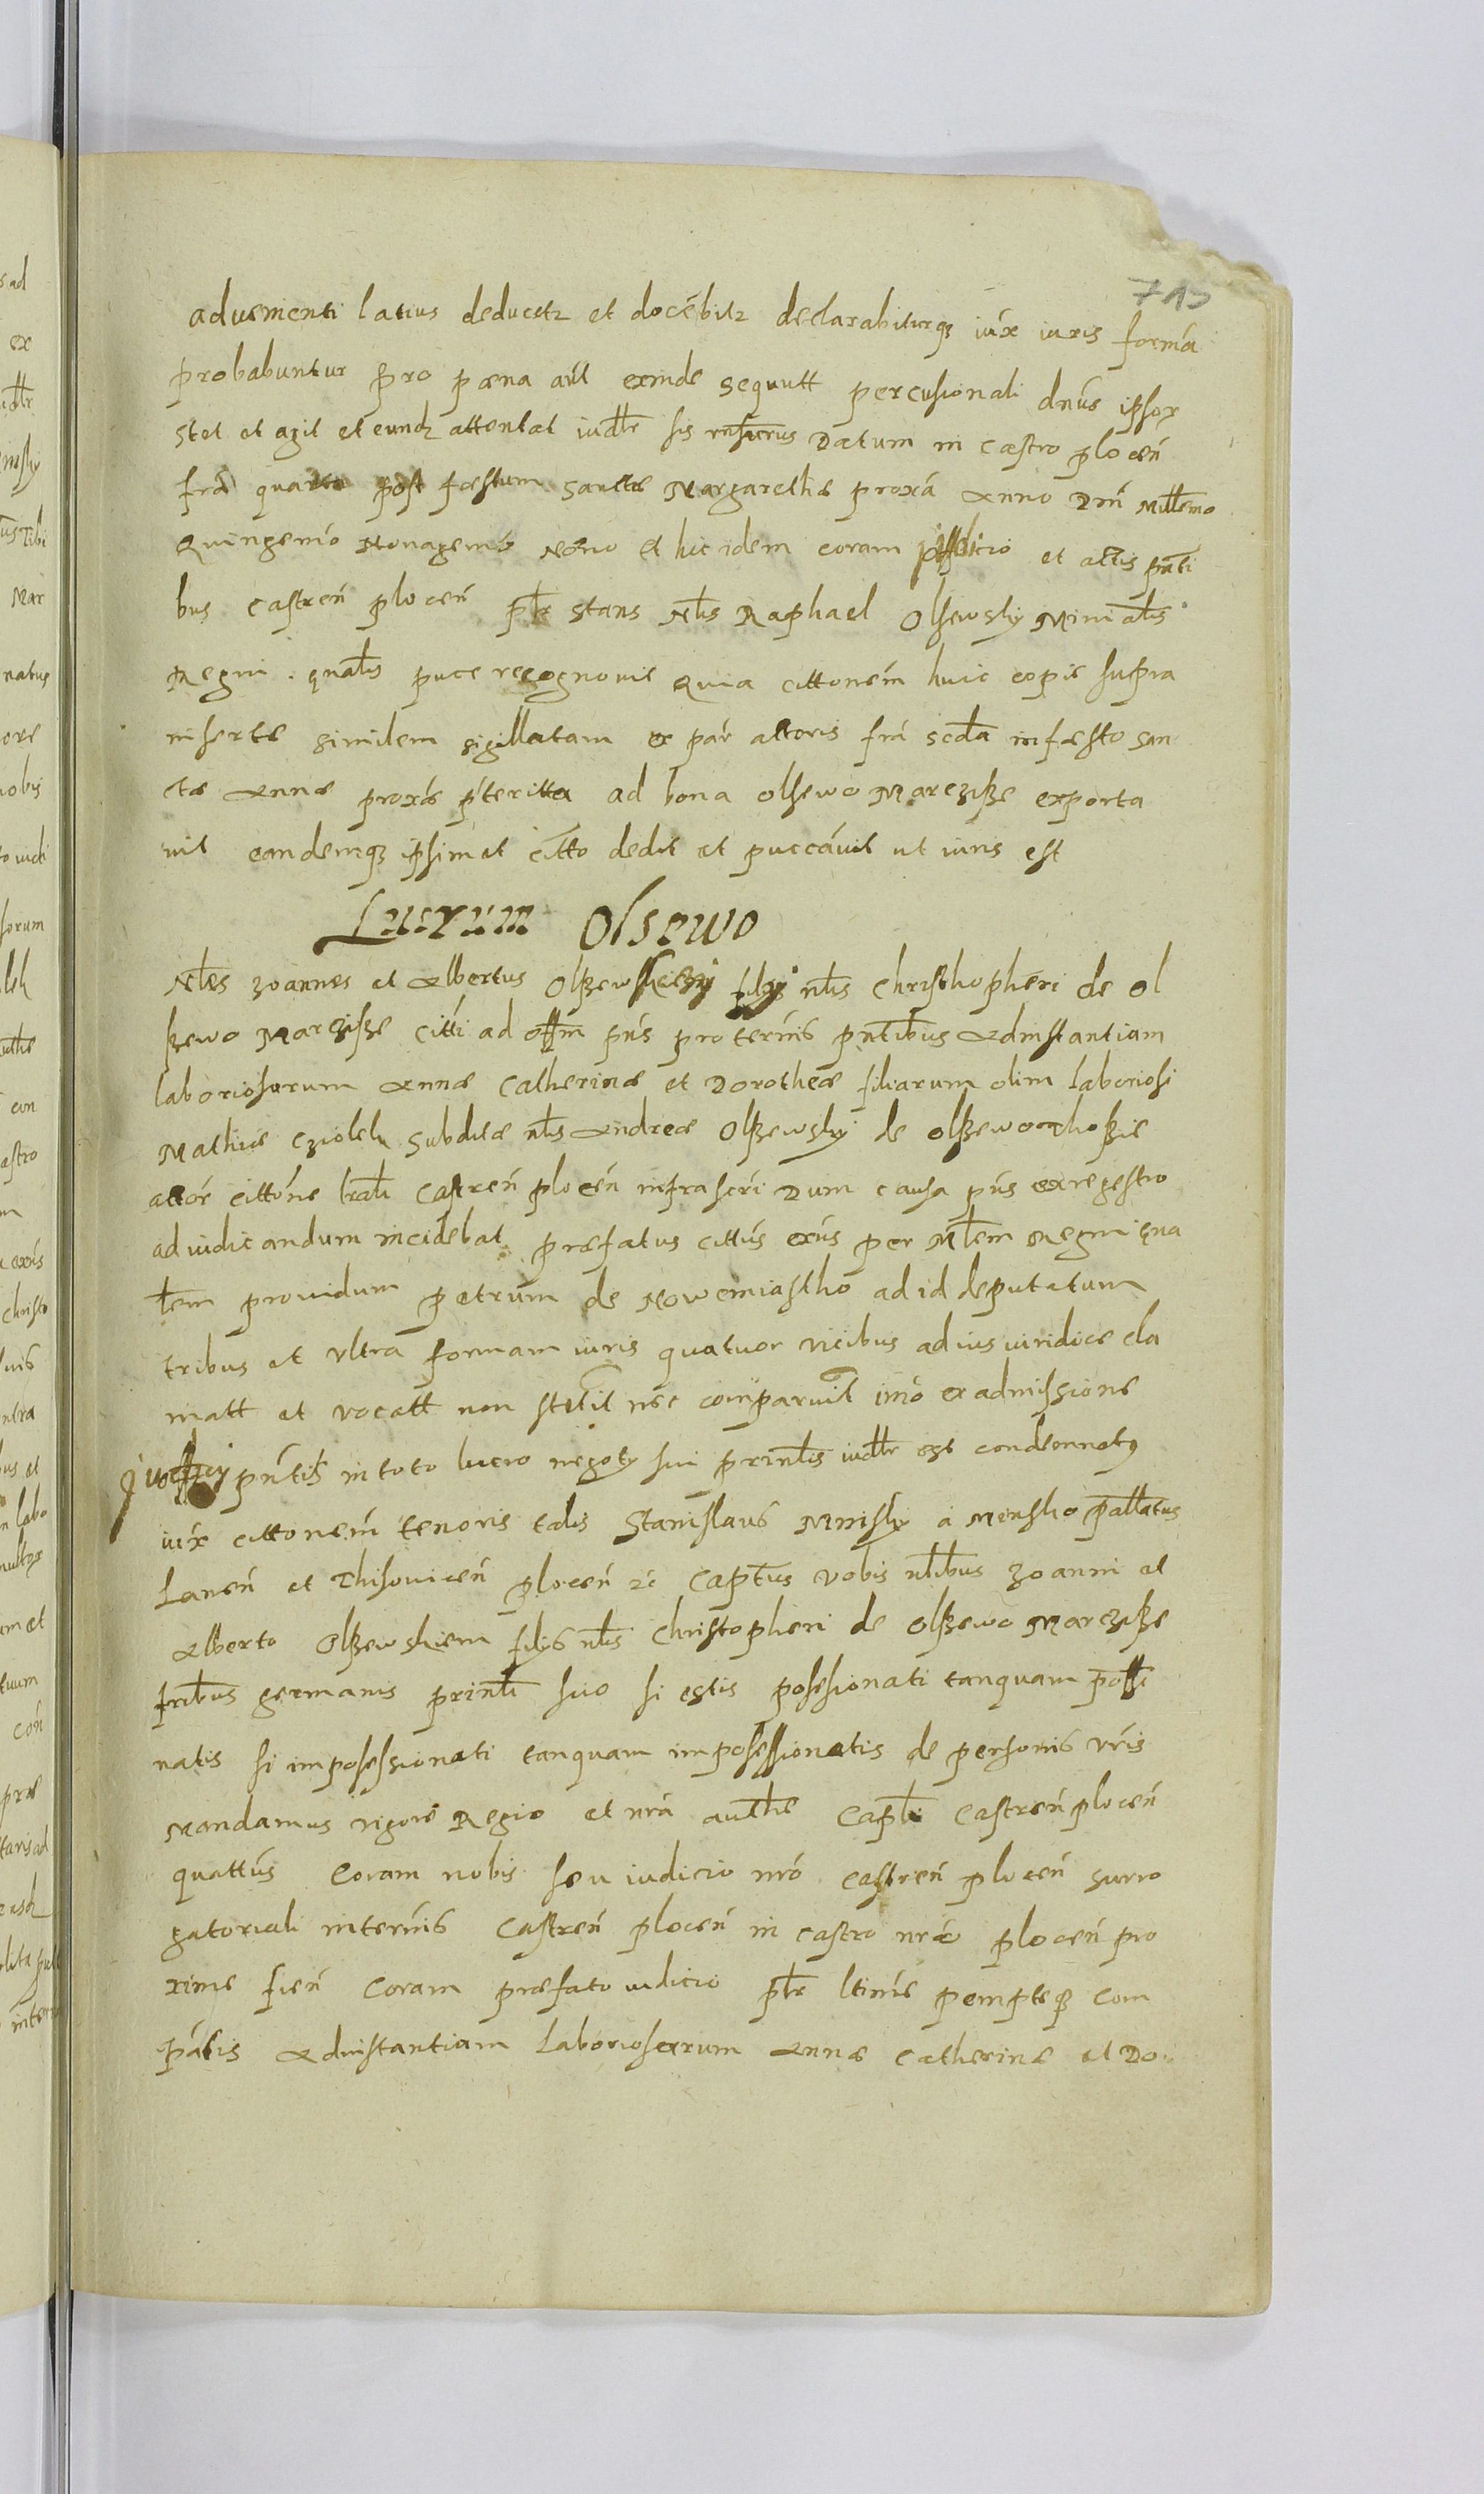 715
advenienti latius deducetz et docēbitz declarabiturqz iux̄ iuris formā
probabuntur Pro pœna aūt exinde sequutt percusionali dn̄us ipsoꝝ
Stet et agit et eundz attentat iudlr sis rn̄surus Datum in Castro plocen̄
fr̄a quarta post fæstum Sanctæ Margarethæ proxā Anno Dnī Millemo
Quingemō Nonagemō Nōno Et hic idem coram officio et actis pn̄ti
bus Castren̄ plocen̄ plr stans Nlīs Raphael Olsewsky Minialīs
Regni qnalīs puce recognovit Quia cittonem̄ huic copie supra
inserte simidem sigillatam ex par̄ actoris fr̄a scda in fæsto san
ctæ Annæ proxæ p̄teritta ad bona Olsewo Marcziße exporta
vit eandemqz ipsimet citto dedit et puccāvit ut iuris est
Lucrum Olsewo
Nlēs Joannes et Albertus Olßewsczy filÿ nlīs Christhopheri de Ol
ßewo Marcziße citti ad offm pn̄s pro termis pn̄tibus Adinstantiam
laboriosarum Annæ Catherinæ et Dorotheæ filiarum olim laboriosi
Mathiæ Cziolek Subditæ nlīs Andreæ Olßewsky de Olßewo Choßie
actor̄ cittōne lrali Castren̄ plocen̄ infrascri Dum causa pn̄s ex regestro
ad iudicandum incidebat præfatus cittus ex̄us per Mlem Regni qna
lem providum Petrum de Nowemiastho ad id deputatum
tribus et ultra formam iuris quatuor vicibus ad ius iuridice cla
matt et vocatt non stetit nec comparuit imō ex admissione
iudicÿ pn̄tis in toto lucro negotÿ sui prinlis iudlr est condemnatꝰ
iux̄ cittonem̄ tenoris talis Stanislaus Minsky a Mensko pallatus
Lancn̄ et Thisovicen̄ plocen̄ zc Captus vobis nlibus Joanni et
Alberto Olßewskiem filÿs nlīs Christopheri de Olßewo Marcziße
fribus germanis prinli suo si estis posesionati tanquam posse
natis si imposessionati tanquam impossessionatis de personis vr̄is
Mandamus vigore Regio et nr̄a authe Capli Castren̄ plocen̄
quattūs Coram nobis seu iudicio nrō Castren̄ plocen̄ surro
gatoriali in termis Castren̄ plocen̄ in castro nrō plocen̄ pro
xime fien̄ Coram præfato iudicio plr ltime pempteqz com
pātis Adinstantiam laboriosarum Annæ Catherinæ et Do